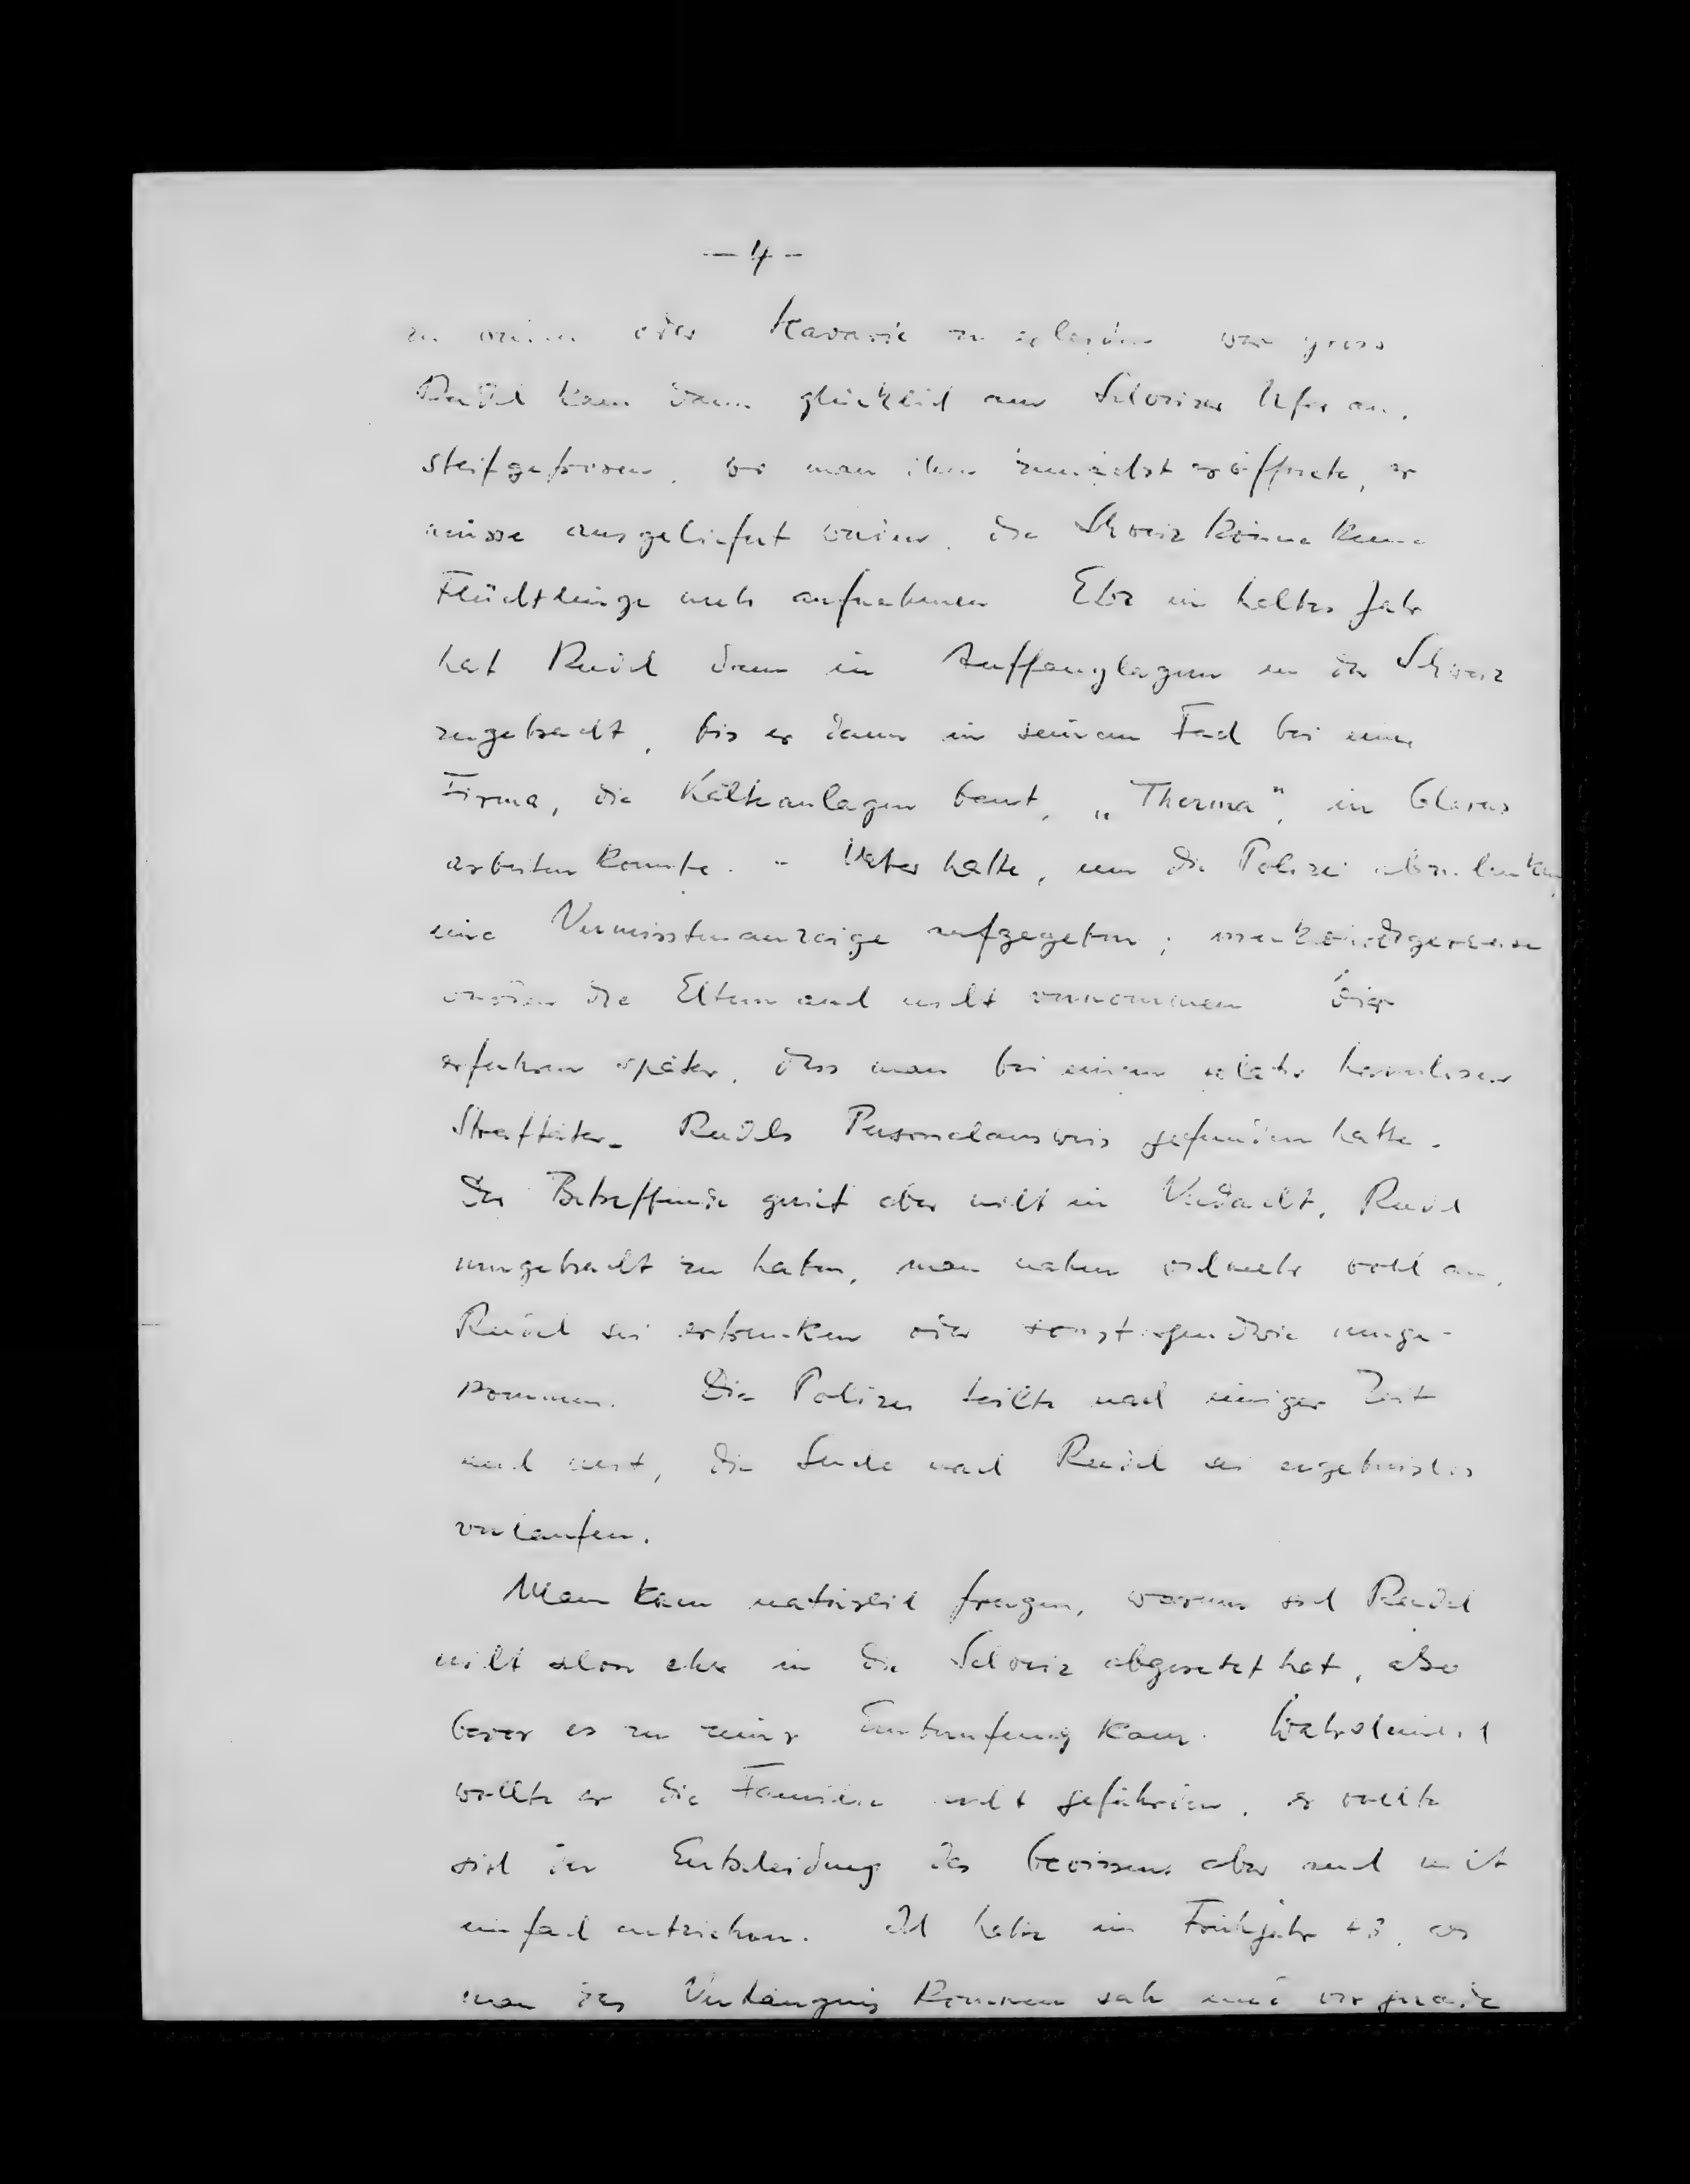 - 4 -
zu werden oder Havarie zu erleiden war gross
Reidel kam dann glücklich am Schweizer Ufer an,
steifgefroren, wo man ihm zunächst eröffnete, er
müsse ausgeliefert werden, die Schweiz könne keine
Flüchtlinge mehr aufnehmen Etwa ein halbes Jahr
hat Reidel dann in Auffanglagern in der Schweiz
zugebracht, bis er dann in seinem Fach bei einer
Firma, die Kälteanlagen baut, „Therma", in Glarus
arbeiten konnte. - Vater hatte, um die Polizei abzulenken,
eine Vermisstenanzeige aufgegeben; merkwürdigerweise
wurden die Eltern auch nicht vernommen Wir
erfuhren später, dass man bei einem relativ harmlosen
Straftäter Reidels Personalausweis gefunden hatte.
Der Betreffende geriet aber nicht in Verdacht, Reidel
umgebracht zu haben, man nahm vielmehr wohl an,
Reidel sei ertrunken oder sonst irgendwie umge-
kommen. Die Polizei teilte nach einiger Zeit
auch mit, die Suche nach Reidel sei ergebnislos
verlaufen.
Man kann natürlich fragen, warum sich Reidel
nicht schon eher in die Schweiz abgesetzt hat, also
bevor es zu seiner Einberufung kam. Wahrscheinlich
wollte er die Familie nicht gefährden, er wollte
sich der Entscheidung des Gewissens aber auch nicht
einfach entziehen. Ich habe im Frühjahr 43, als
man das Verhängnis kommen sah und wir gerade